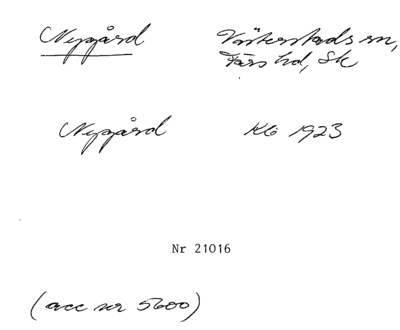 Nygård Västerstads sn,
Färs hd, Sk
Nygård KG 1923
Nr 21016
(acc nr 5600)